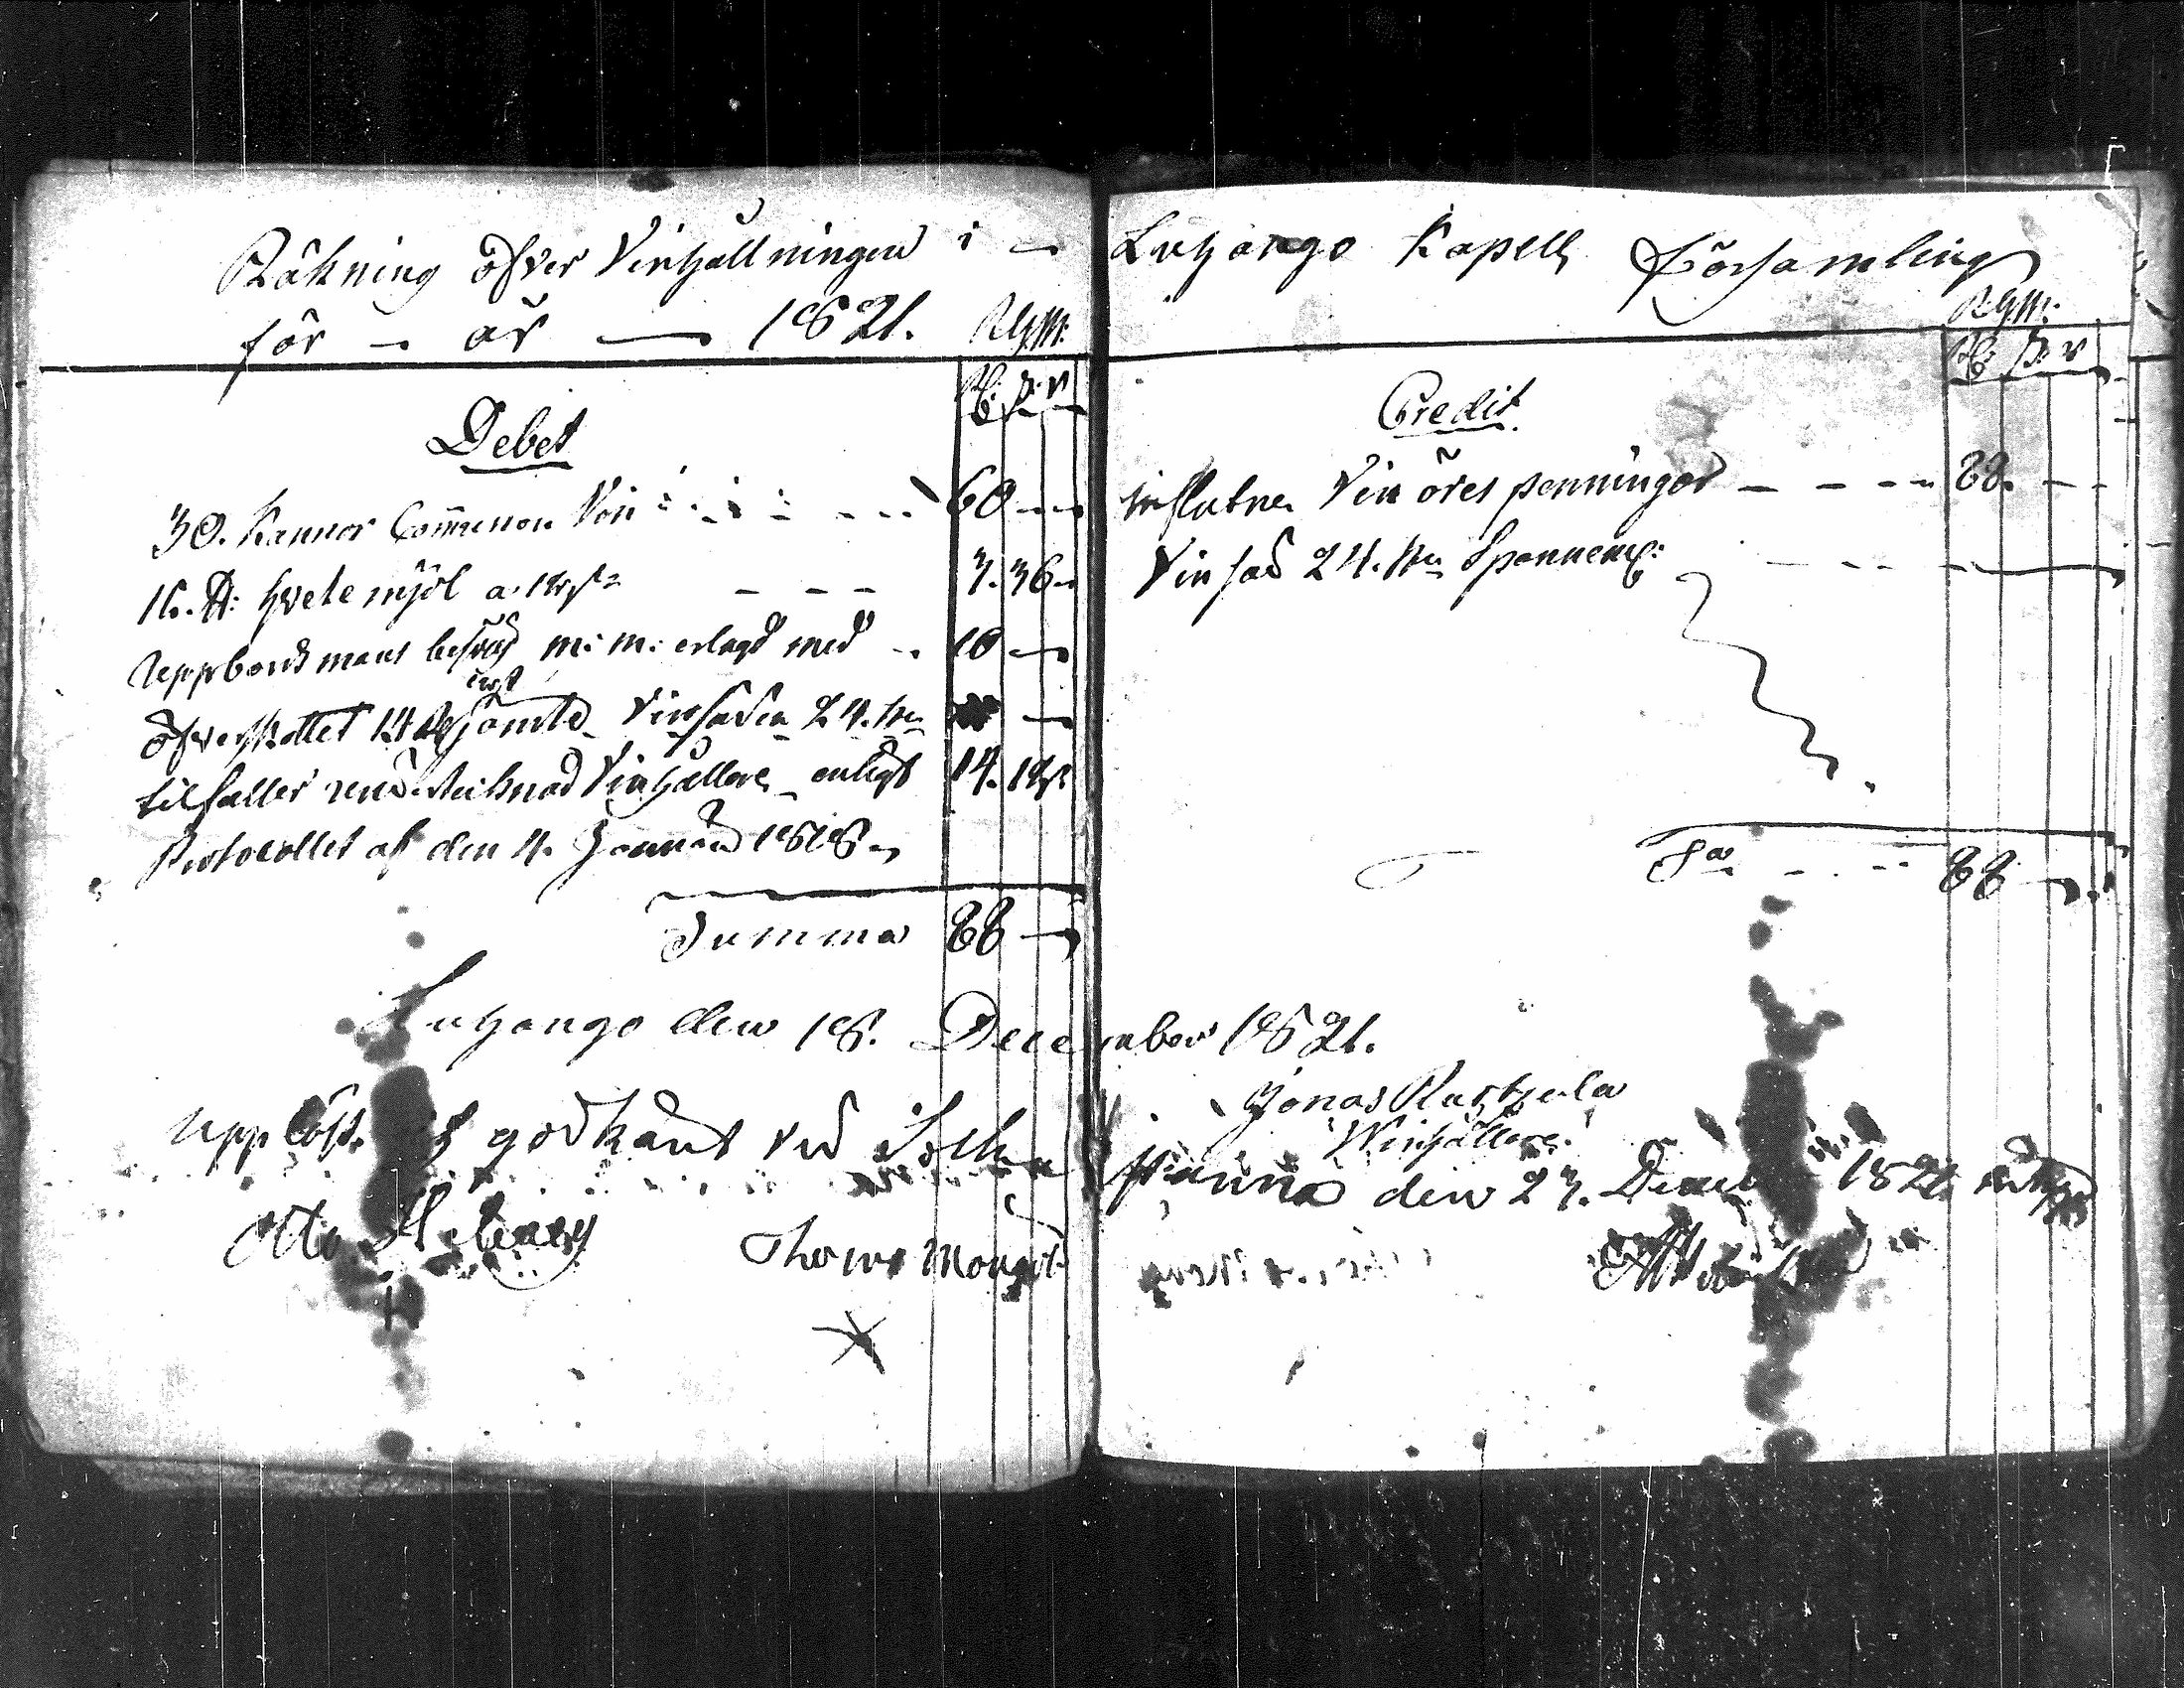 Räkning öfver Vinhållningen i Luhango Kapells Församling
för år 1821. Rgm:
Debet
30. Kannor Commenion Vin 60
16. ℔: hvetemjöl a. 12 s 3. 36
Uppbördsmans besvär m: m: erlagd med 10
öfverskottet 14 R jämte Vinsäden 24.
tilfaller undertecknad Vinhållare enligt 14. 12
Protocollet af den 4. Januarii 1818
Summa 88
Rgm:
Credit
influtne Vin öres penningar 88.
Vinsäd 24. Spannemål:
Sa 88
Luhango den 18. December 1821.
Jonas Rutjula
Vinhållare.
Uppläst och godkänt vid Sockne stämma den 23. Decemb 1821
Otto
Thomas